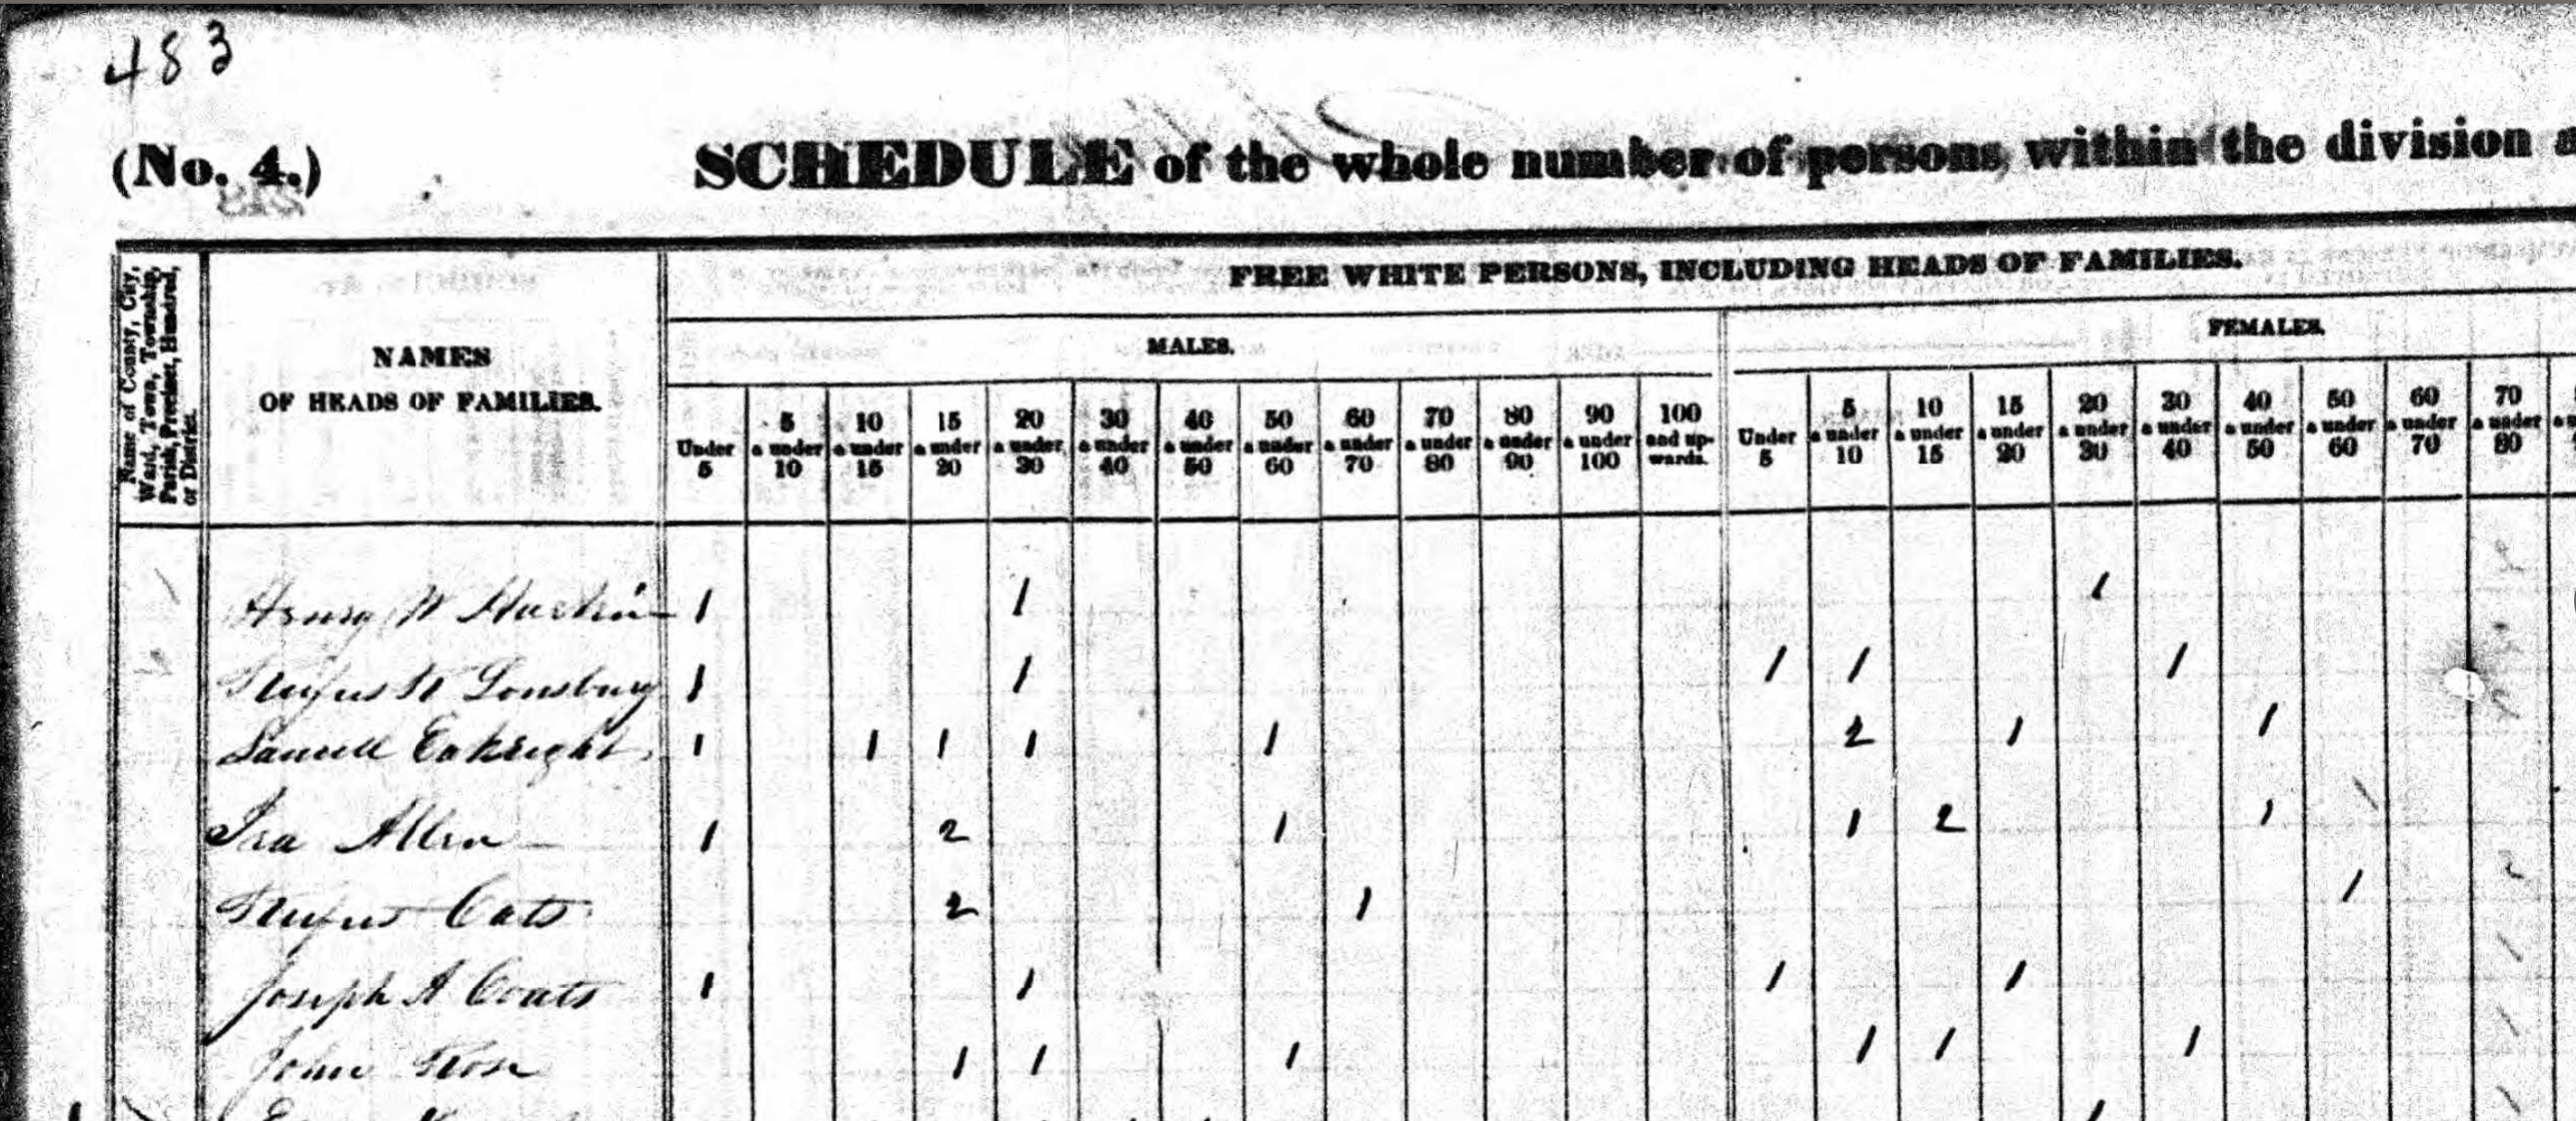 483
(No. 4.)
SCHEDULE of the whole number of persons within the division
Name of County, City, Ward, Town, Township, Parish, Precinct, Hundred, or District.
NAMES
OF HEADS OF FAMILIES.
FREE WHITE PERSONS, INCLUDING HEADS OF FAMILIES.
MALES.
FEMALES.
Under 5 | 5 a under 10 | 10 a under 15 | 15 a under 20 | 20 a under 30 | 30 a under 40 | 40 a under 50 | 50 a under 60 | 60 a under 70 | 70 a under 80 | 80 a under 90 | 90 a under 100 | 100 and upwards. | Under 5 | 5 a under 10 | 10 a under 15 | 15 a under 20 | 20 a under 30 | 30 a under 40 | 40 a under 50 | 50 a under 60 | 60 a under 70 | 70 a under 80
Henry W 1 1 1
Rufus Lonsbury 1 1 1 1 1
Samuell Eakright 1 1 1 1 1 2 1 1
Ira Allen 1 2 1 1 2 1
Rufus Cats 2 1 1
Joseph A Coats 1 1 1 1
John Rose 1 1 1 1 1 1